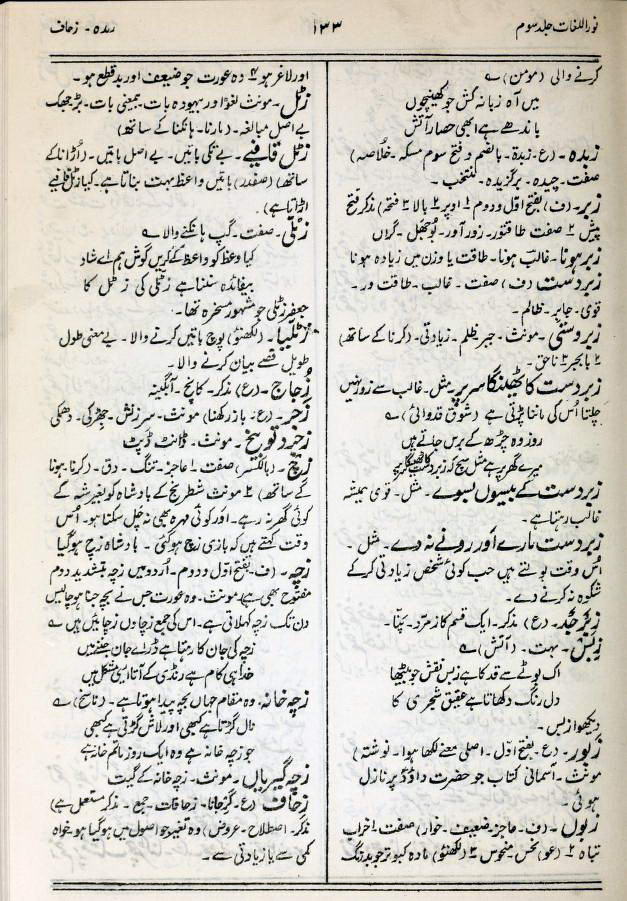 نوراللغات جلد سوم
۱۳۳
زبدہ - زحاف
کرنے والی (مومن) ؎
میں آہ زبانہ کش جو کھینچوں
باندھے ہے ابھی حصار آتش
زبدہ - (ع - زبدۃ - بالضم و فتح سوم مسکہ - خلاصہ)
صفت - چیدہ - برگزیدہ - منتخب -
زبر - (ف) بفتح اوّل و دوم ۱ اوپر ۲ بالا ۳ فتحہ) مذکر فتح
پیش ۲ صفت طاقتور - زور آور - بوجھل - گراں
زبر ہونا - غالب ہونا - طاقت یا وزن میں زیادہ ہونا
زبردست (ف) صفت - غالب - طاقت ور -
قوی - جابر - ظالم -
زبردستی - مونث - جبر - ظلم - زیادتی - (کرنا کے ساتھ)
۲ بالجبر ۳ ناحق -
زبردست کا ٹھینگا سر پر - مثل - غالب سے زور نہیں
چلتا اُس کی ماننا پڑتی ہے (شوق قدوائی) ؎
روز وہ چڑھ کے برس جاتے ہیں
میرے گھر پر ہے مثل سچ کہ زبردست کا ٹھینگا سر پر
زبردست کے بیسوں بسوے - مثل - قوی ہمیشہ
غالب رہتا ہے -
زبردست مارے اور رونے نہ دے - مثل -
اُس وقت بولتے ہیں جب کوئی شخص زیادتی کرکے
شکوہ نہ کرنے دے -
زبرجد - (ع) مذکر - ایک قسم کا زمرّد - پنّا -
زبس - بہت - (آتش) ؎
اک بوٹے سے قد کا ہے زبس نقش جو بیٹھا
دل رنگ دکھاتا ہے عقیق شجری کا
دیکھو ازبس -
زبور - (ع - بفتح اوّل - اصلی معنے لکھا ہوا - نوشتہ)
مونث - آسمانی کتاب جو حضرت داؤدؑ پر نازل
ہوئی -
زبول - (ف - عاجز - ضعیف - خوار) صفت ۱ خراب
تباہ ۲ (عو) نحس - منحوس ۳ (لکھنؤ) مادہ کبوتر جو بدرنگ
اور لاغر ہو ۴ وہ عورت جو ضعیف اور بد قطع ہو -
زٹل - مونث لغو اور بیہودہ بات - بے معنی بات - بڑ - جھک
بے اصل مبالغہ - (مارنا - ہانکنا کے ساتھ)
زٹل قافیے - بے تکی باتیں - بے اصل باتیں - (اُڑانا کے
ساتھ) (صفدر) باتیں واعظ بہت بناتا ہے - کیا زٹل قافیے
اڑاتا ہے) -
زٹلی - صفت - گپ ہانکنے والا ؎
کیا وعظ کو واعظ کے کریں گوش ہم اے شاد
بیفائدہ سننا ہے زٹلی کی زٹل کا
جعفر زٹلی جو مشہور مسخرہ تھا -
زٹلیا - (لکھنؤ) پوچ باتیں کرنے والا - بے معنی طول
طویل قصے بیان کرنے والا -
زُجاج - (ع) مذکر - کانچ - آبگینہ
زَجر - (ع - باز رکھنا) مونث - سرزنش - جھڑکی - دھمکی
زجر و توبیخ - مونث - ڈانٹ ڈپٹ
زِچ - (بالکسر) صفت ۱ عاجز - تنگ - دق - (کرنا - ہونا
کے ساتھ) ۲ مونث شطرنج کے بادشاہ کو بغیر شہ کے
کوئی گھر نہ رہے - اور کوئی مہرہ بھی نہ چل سکتا ہو - اُس
وقت کہتے ہیں کہ بازی زچ ہوگئی - بادشاہ زچ ہوگیا
زچہ - (ف - بفتح اوّل و دوم - اُردو میں زچہ بتشدید دوم
مفتوح بھی ہے) مونث - وہ عورت جس نے بچہ جنا ہو چالیس
دن تک زچہ کہلاتی ہے - اس کی جمع زچاؤں زچائیں ہیں ؎
زچہ کی جان کا رمنا ہے ذرا ہے جان جننے میں
خدا ہی کام ہے رنڈی کے آتا ایسی مشکل میں
زچہ خانہ - وہ مقام جہاں بچہ پیدا ہوتا ہے - (ناسخ) ؎
نال گڑتا ہے کبھی اور لاش گڑتی ہے کبھی
جو زچہ خانہ ہے وہ ایک روز ماتم خانہ ہے
زچہ گیریاں - مونث - زچہ خانہ کے گیت
زحاف (ع - گر جانا - زحافات - جمع - مذکر مستعمل ہے)
مذکر - اصطلاح - عروض) وہ تغیر جو اصول میں ہوگیا ہو خواہ
کمی سے یا زیادتی سے -